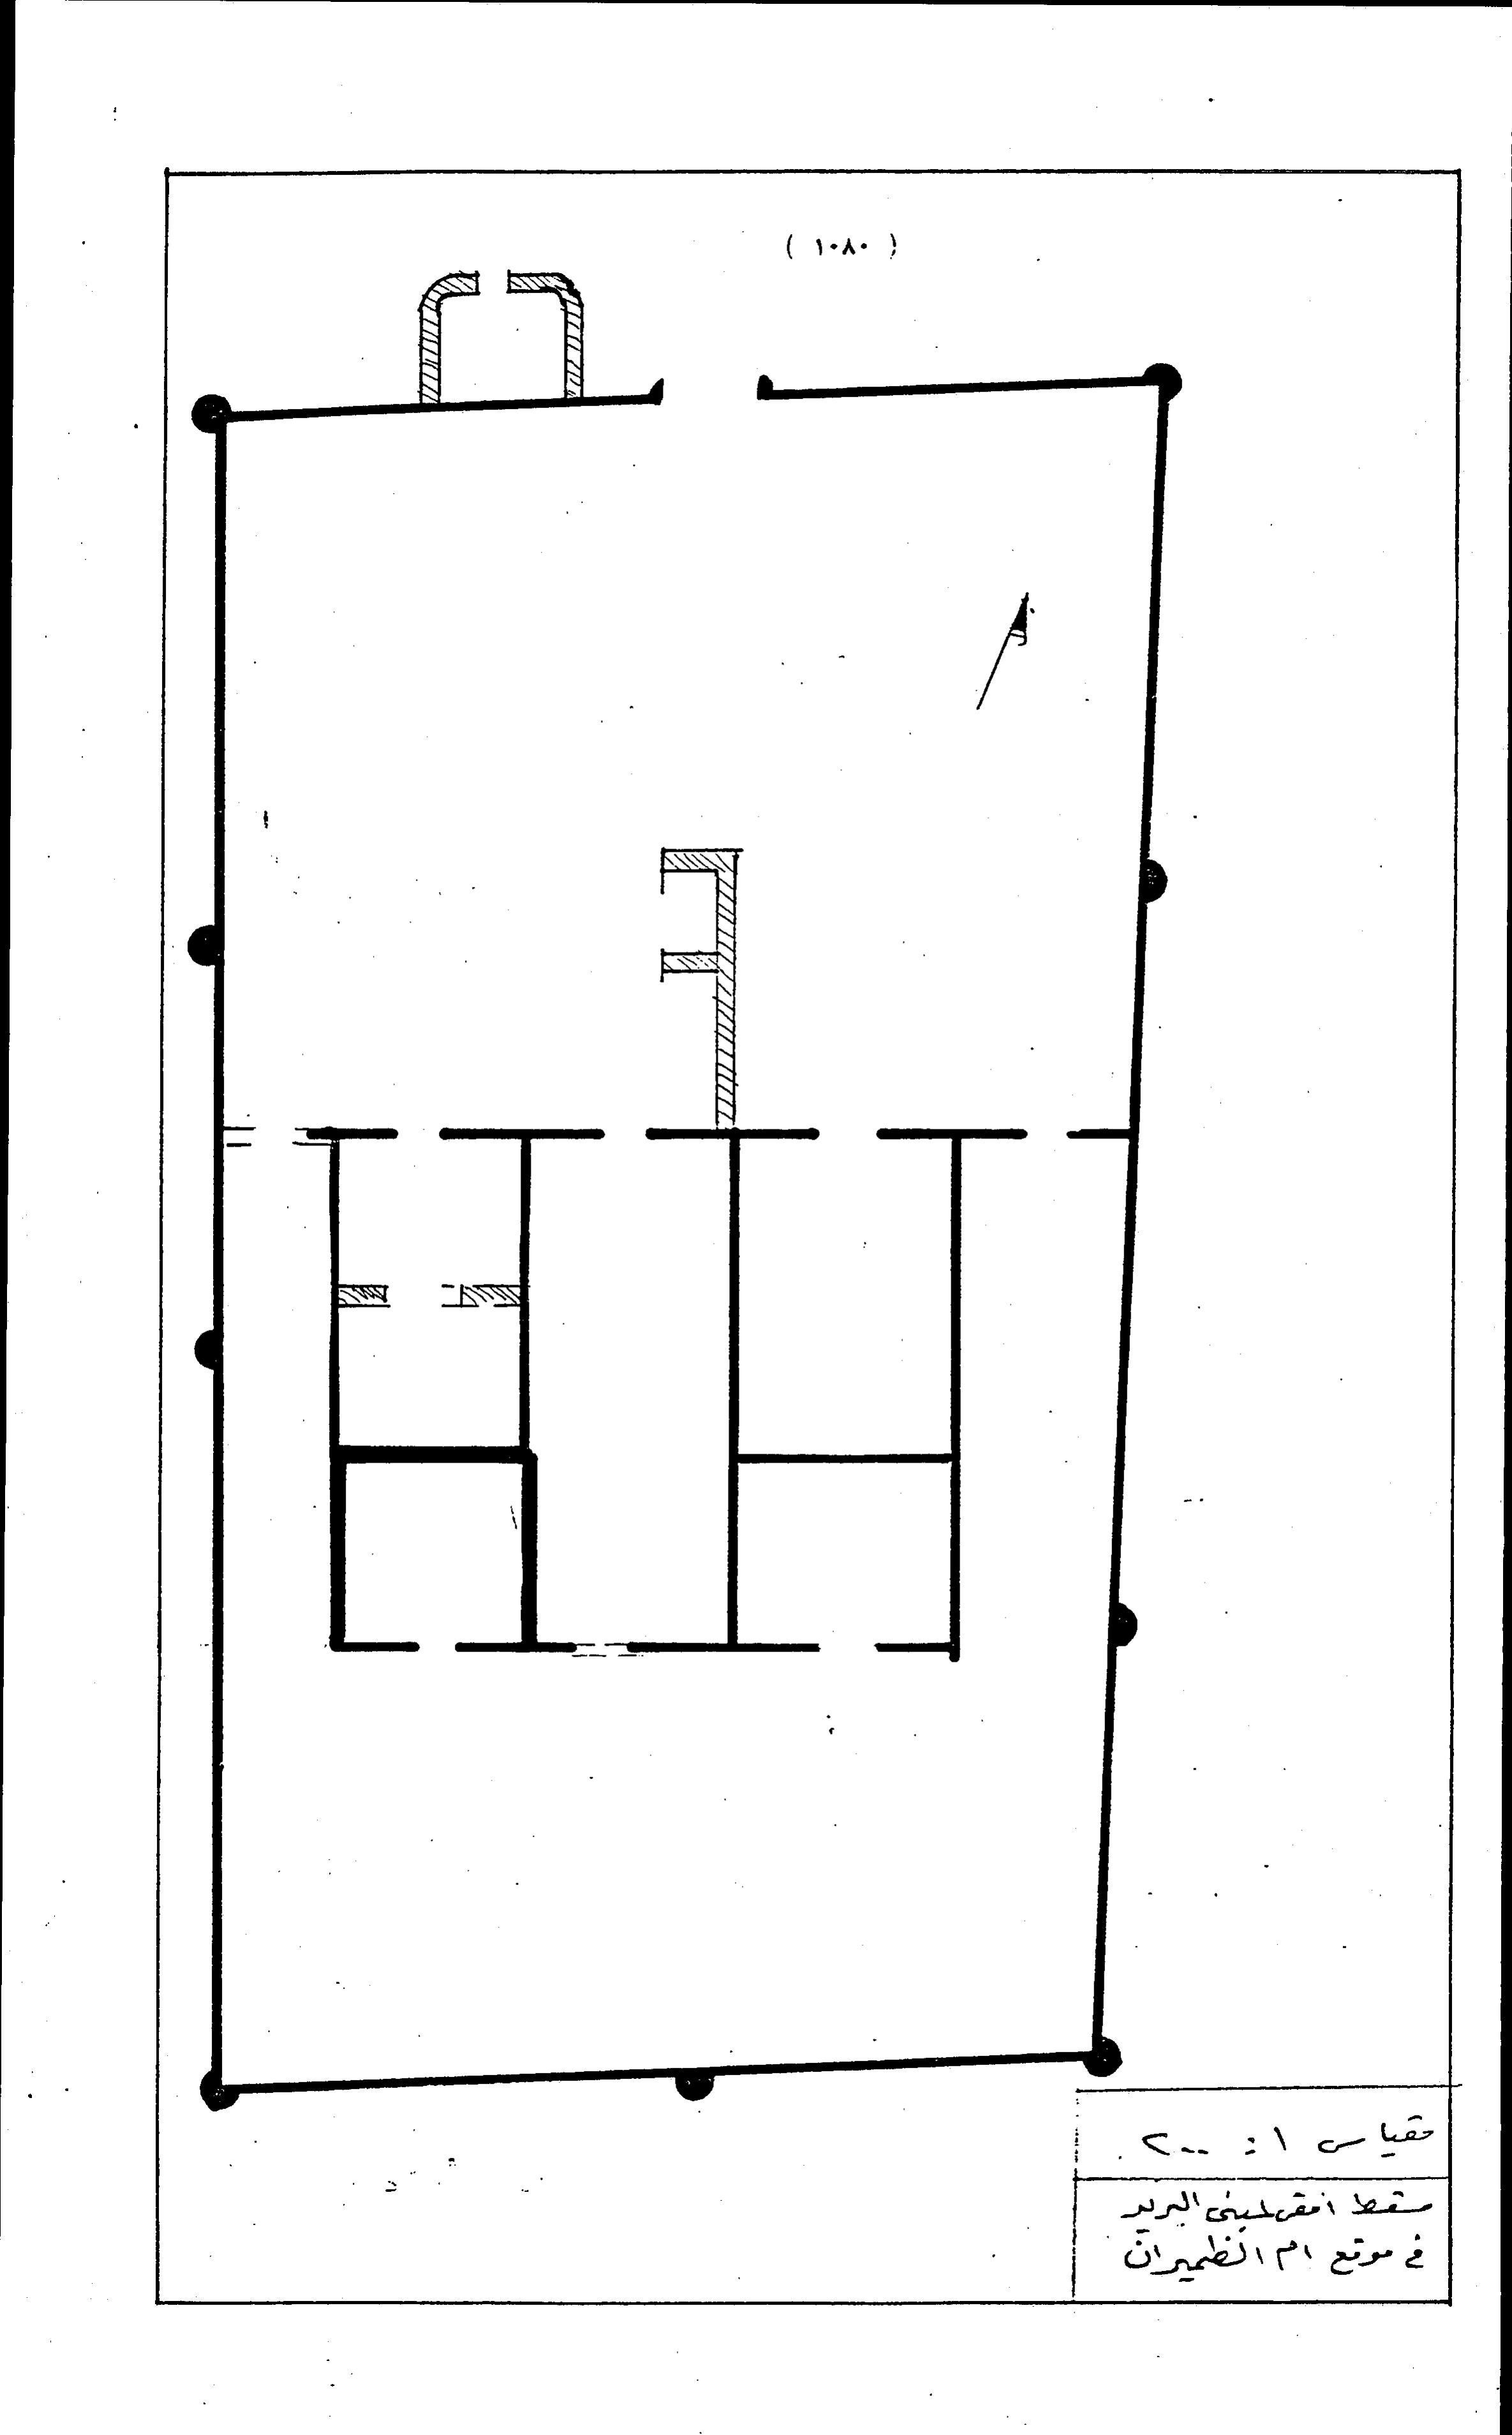 ( ١٠٨٠ )
مقياس ١ : ٢٠٠
مسقط افقى لمبنى البريد
فى موقع ام الظميران